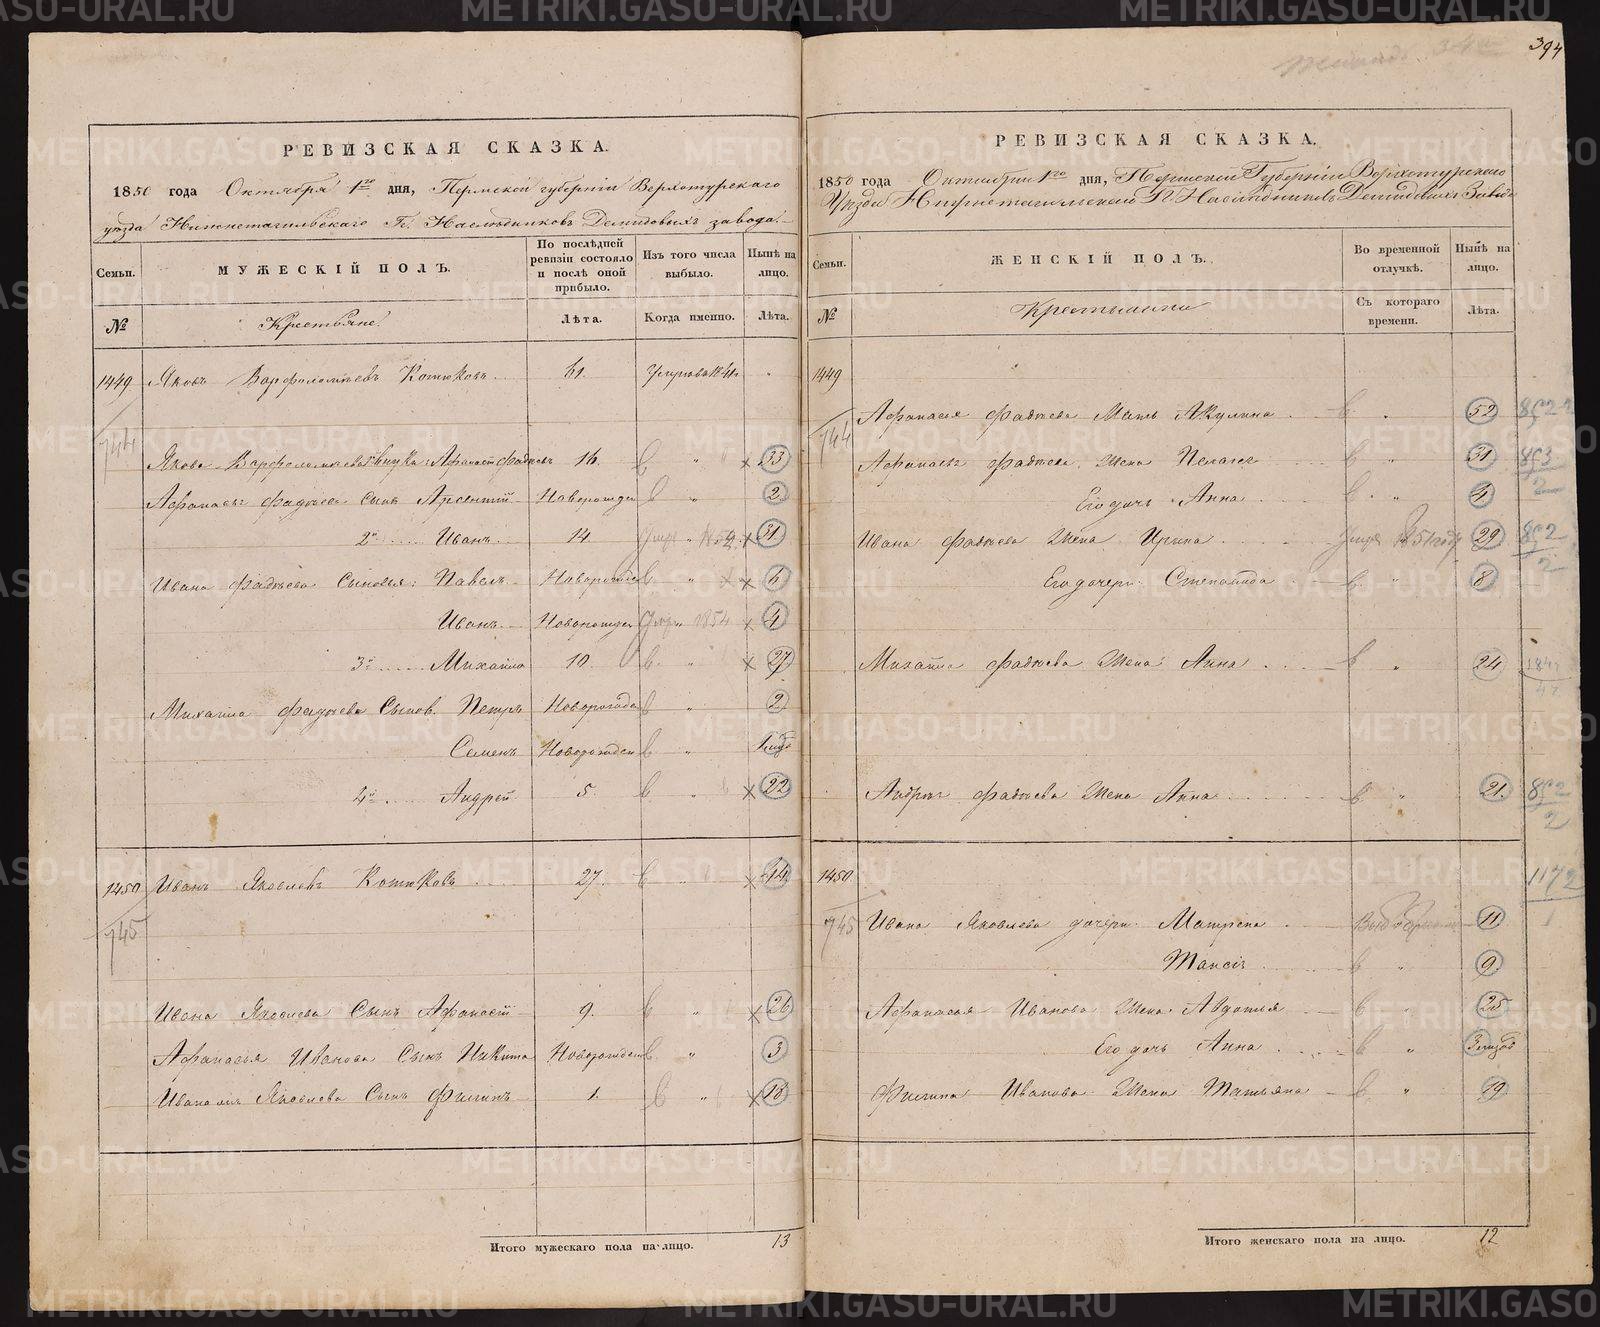 394
РЕВИЗСКАЯ СКАЗКА.
1850 года Октября 1го дня, Пермской губерніи Верхотурскаго
уезда Нижнетагильскаго Гг. Наследниковъ Демидовыхъ завода.
Семьи.
МУЖЕСКІЙ ПОЛЪ.
По послѣдней ревизіи состояло и послѣ оной прибыло.
Изъ того числа выбыло.
Нынѣ на лицо.
№
Крестьяне.
Лѣта.
Когда именно.
Лѣта.
1449 Яковъ Варфоломеевъ Котюковъ
744
Якова Варфоломеева внукъ Афанасій Фадѣевъ 33
Афанасья Фадѣева сынъ Арсентій Новорожден 2
2й Иванъ 14 31
Ивана Фадѣева Сыновья: Павелъ Новорожден
Иванъ Новорожден 1854 4
3й Михайло 10. 27
Михайла Фадѣева Сынов. Петръ Новорожден 2
Семенъ Новорожден
4й Андрей 5. 22
1450 Иванъ Яковлевъ Котюковъ 27.
745
Ивана Яковлева Сынъ Афанасій 9. 26
Афанасья Иванова Сынъ Никита Новорожден 3
Ивана Яковлева Сынъ Филипъ 1. 18
Итого мужескаго пола на лицо. 13
РЕВИЗСКАЯ СКАЗКА.
1850 года Октября 1го дня, Пермской Губерніи Верхотурскаго
Уезда Нижнетагильскаго Гг. Наследниковъ Демидовыхъ Завода
Семьи.
ЖЕНСКІЙ ПОЛЪ.
Во временной отлучкѣ.
Нынѣ на лицо.
№
Крестьянки
Съ котораго времени.
Лѣта.
1449
744
Афанасья Фадѣева Мать Акулина 52
Афанасья Фадѣева Жена Пелагея 31
Его дочь Анна 4
Ивана Фадѣева Жена Ирина 29
Его дочери: Степанида 8
Михайла Фадѣева Жена Анна 24
Андрея Фадѣева Жена Анна 21.
1450 1172
745
Ивана Яковлева дочери Матрена 11
Таисія 9
Афанасья Иванова Жена Авдотья 25
Его дочь Анна
Филипа Иванова Жена Татьяна 19
Итого женскаго пола на лицо. 12
METRIKI.GASO-URAL.RU